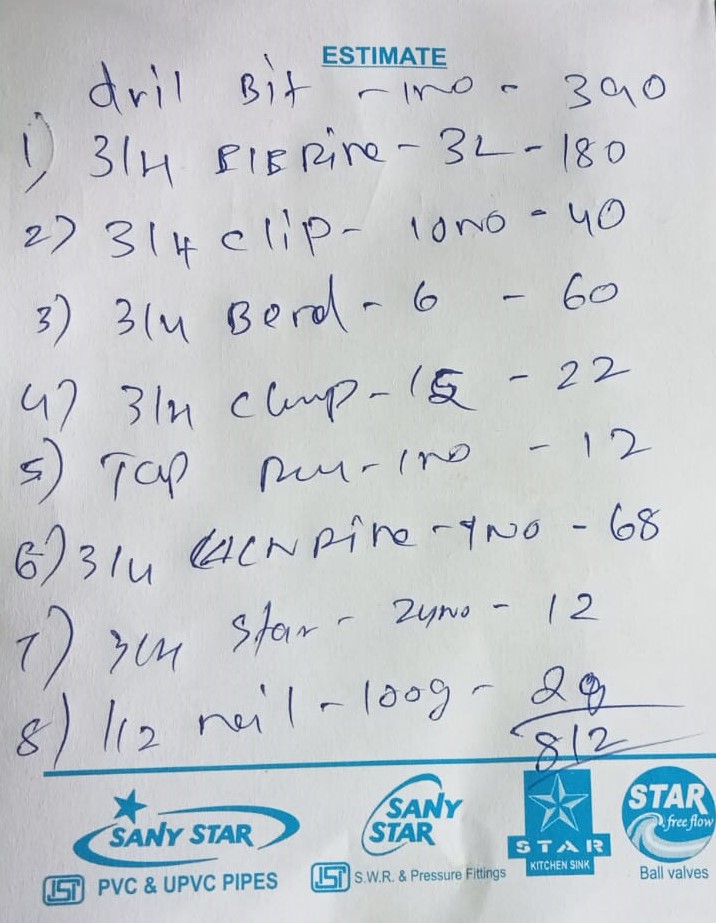 ESTIMATE
dril Bit - 1no - 390
1) 3/4 Pipe - 3L - 180
2) 3/4 clip - 10no - 40
3) 3/4 Bend - 6 - 60
4) 3/4 - 15 - 22
5) Tap - 1no - 12
6) 3/4 Pipe - NO - 68
7) 3/4 Star - 24no - 12
8) 1/2 neil - 100g -
812
SANY STAR
PVC & UPVC PIPES
SANY STAR
S.W.R. & Pressure Fittings
STAR
KITCHEN SINK
STAR
free flow
Ball valves